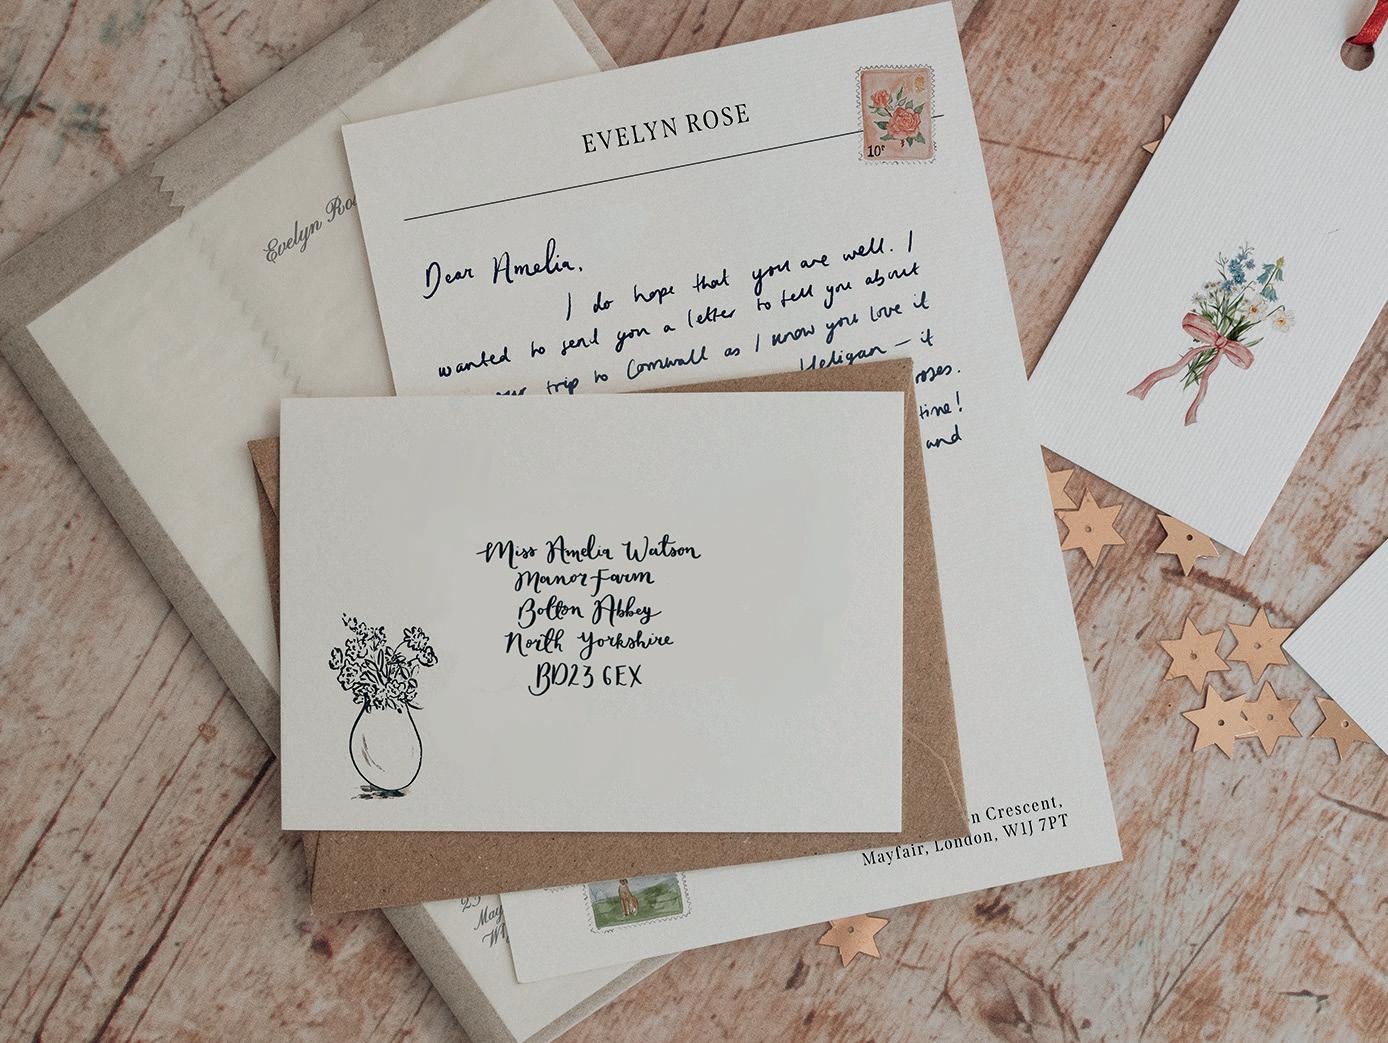 Evelyn
EVELYN ROSE
10
Dear Amelia,
I do hope that you are well. I
wanted to send you a letter to tell you about
our trip to Cornwall as I know you love it
Heligan – it
roses.
time!
and
Miss Amelia Watson
Manor Farm
Bolton Abbey
North Yorkshire
BD23 6EX
Crescent,
Mayfair, London, W1J 7PT